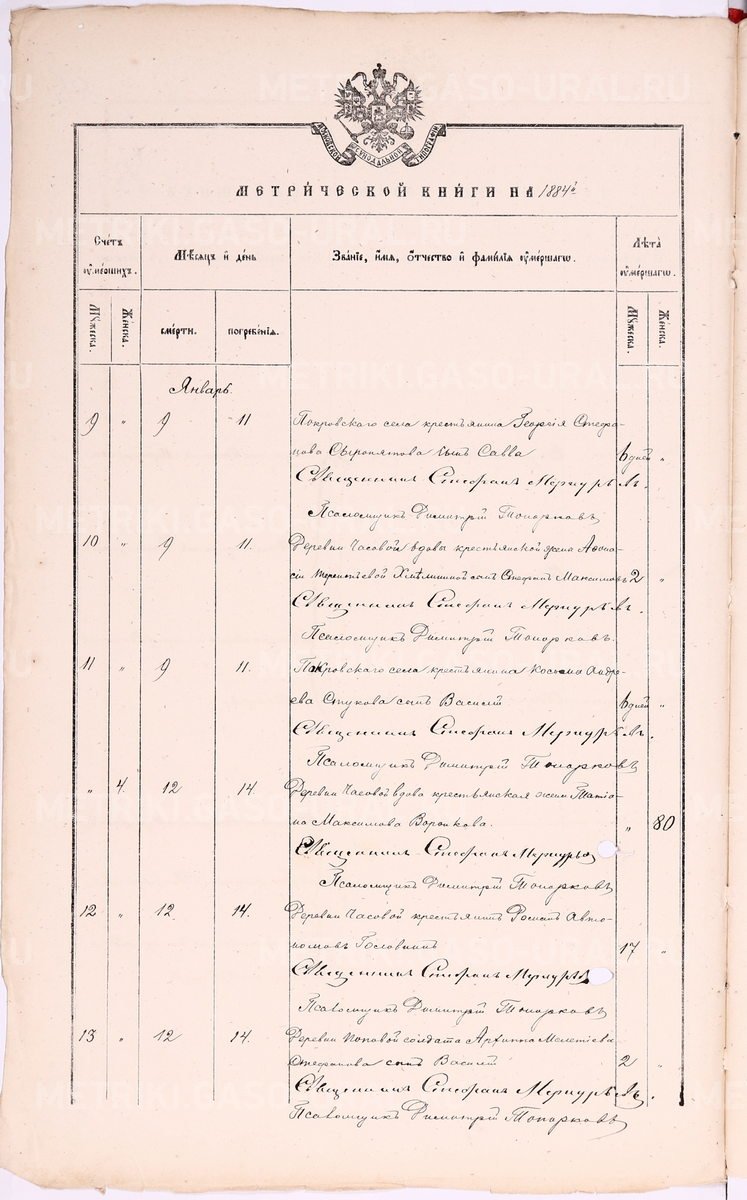 МОСКОВСКОЙ СѴНОДАЛЬНОЙ ТИПОГРАФІИ
МЕТРИЧЕСКОЙ КНИГИ НА 1884 г
Счетъ умершихъ. Мѣсяцъ и день Званіе, имя, отчество и фамилія умершаго. Лѣта умершаго.
Мужеска. Женска. смерти. погребенія. Мужеска. Женска.
Январь.
9 „ 9 11 Покровскаго села крестьянина Георгія Стефа-
нова Сыропятова сынъ Савва 6 дней „
Священникъ Стефанъ Меркурьевъ.
Псаломщикъ Димитрій Топорковъ
10 „ 9 11. Деревни Часовой вдовы крестьянской жены Афона-
сіи Терентьевой Хмѣлининой сынъ Стефанъ Максимовъ 2 „
Священникъ Стефанъ Меркурьевъ.
Псаломщикъ Димитрій Топорковъ.
11 „ 9 11. Покровскаго села крестьянина Косьмы Андре-
ева Стукова сынъ Василій 6 дней „
Священникъ Стефанъ Меркурьевъ.
Псаломщикъ Димитрій Топорковъ
„ 4. 12 14. Деревни Часовой вдова крестьянская жена Татія-
на Максимова Воронкова. „ 80
Священникъ Стефанъ Меркурьевъ
Псаломщикъ Димитрій Топорковъ
12 „ 12. 14. Деревни Часовой крестьянинъ Романъ Авто-
номовъ 17 „
Священникъ Стефанъ Меркурьевъ
Псаломщикъ Димитрій Топорковъ
13 „ 12 14. Деревни Поповой солдата Архиппа Мелетіева
Стефанова сынъ Василій 2 „
Священникъ Стефанъ Меркурьевъ.
Псаломщикъ Димитрій Топорковъ
METRIKI.GASO-URAL.RU